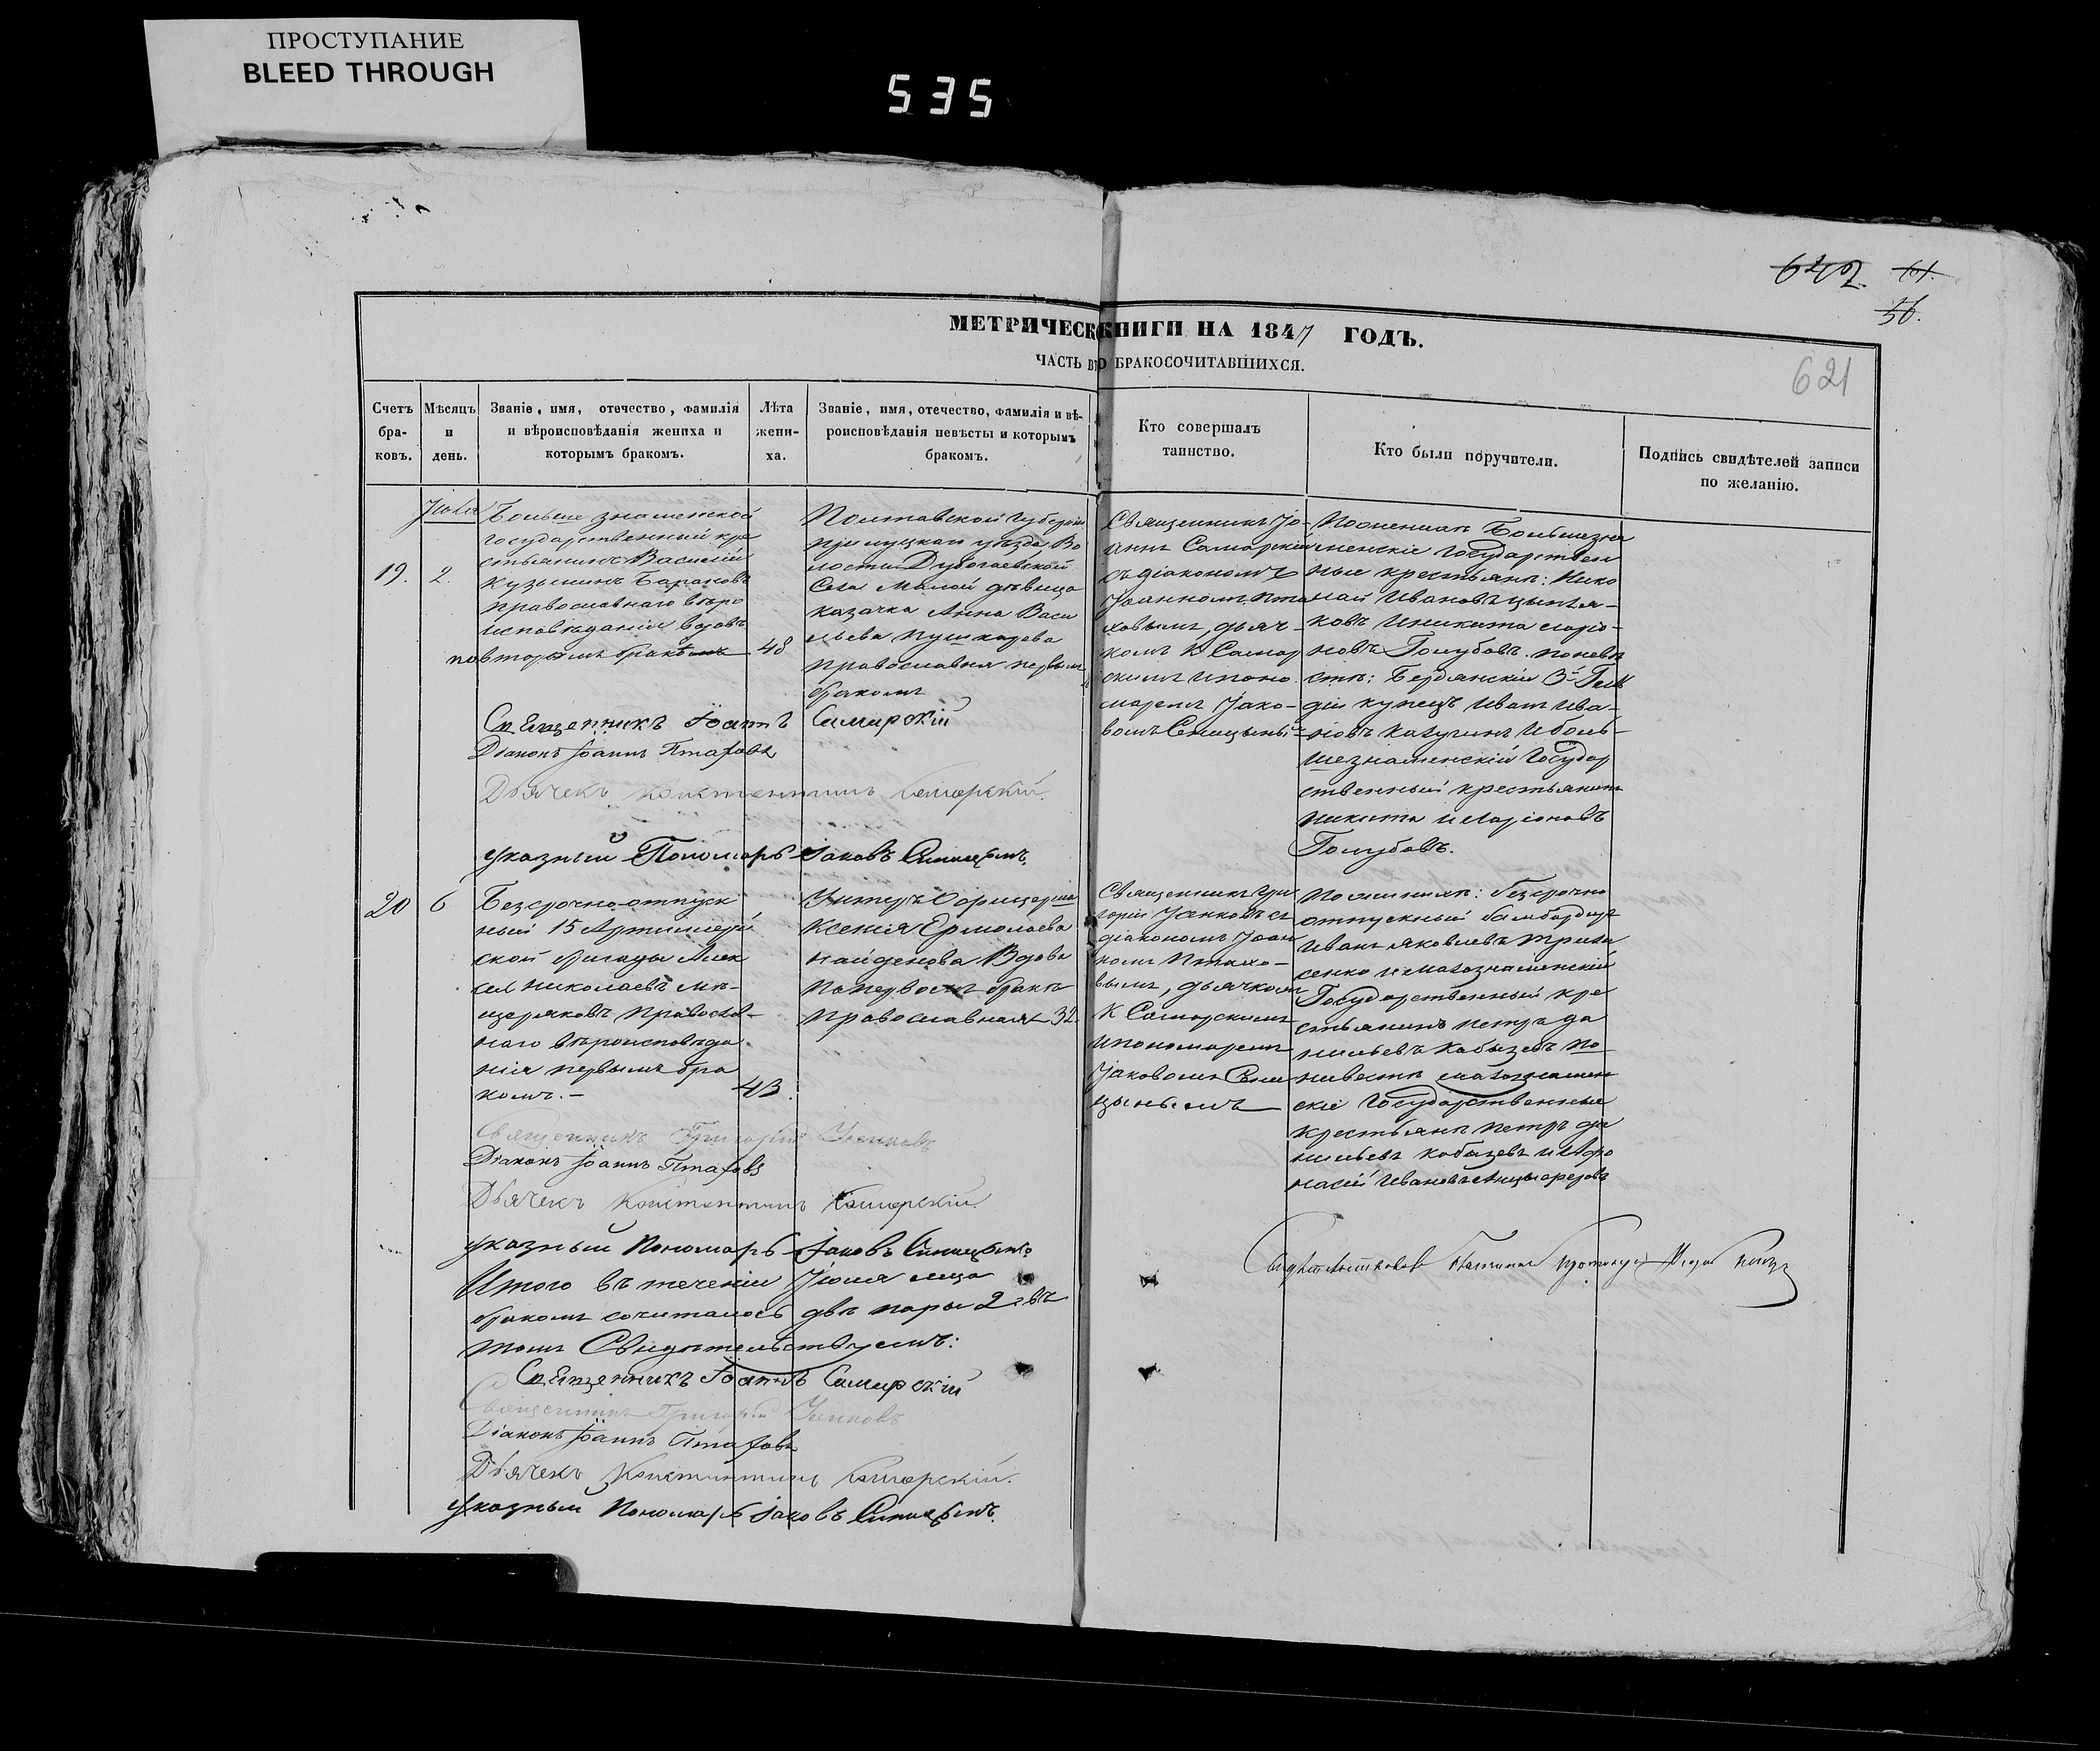 ПРОСТУПАНИЕ
BLEED THROUGH
535
642. 61.
56.
621
МЕТРИЧЕСК КНИГИ НА 1847 ГОДЪ.
ЧАСТЬ ВТО БРАКОСОЧИТАВШИХСЯ.
Счетъ бра-ковъ.
Мѣсяцъ и день.
Званіе, имя, отечество, фамилія и вѣроисповѣданія жениха и которымъ бракомъ.
Лѣта жени-ха.
Званіе, имя, отечество, фамилія и вѣ-роисповѣданія невѣсты и которымъ бракомъ.
Кто совершалъ таинство.
Кто были поручители.
Подпись свидѣтелей записи по желанію.
Іюля
19. 2.
Больше знаменской
государственный кре
стьянинъ Василій
Кузьминъ Барановъ
православнаго вѣро
исповѣданія вдовъ
повторымъ бракомъ
48
Полтавской губерніи
прилуцкаго уѣзда, Во
лости Дубогаевской
Села Малой дѣвица
казачка Анна Васи
льева Пушкарева
православная первымъ
бракомъ
Священникъ Іо-
аннъ Самарскій
съ діакономъ
Іоанномъ Пта
ховымъ, дьяч-
комъ К Самар
скимъ и поно
маремъ Іако-
вомъ Синицынымъ
По женихѣ Большезна
менскіе государствен
ные крестьяне: Нико
лай Ивановъ
ковъ и Никита ларіо-
новъ Голубовъ. по невѣ
стѣ: Бердянскій 3й Гиль
діи купецъ Иванъ Ива-
новъ Калугинъ и боль-
шезнаменскій Государ
ственный крестьянинъ
Никита иларіоновъ
Голубовъ.
Священникъ Іоаннъ Самарскій
Діаконъ Іоаннъ Птаховъ
Дьячекъ Константинъ Самарскій.
указный Пономарь Іаковъ Синицынъ.
20 6
Безсрочно-отпуск
ный 15 Артиллерій
ской бригады Алек
сѣй Николаевъ Мѣ-
щеряковъ православ-
наго вѣроисповѣда
нія первымъ бра
комъ.-
43.
Унтеръ Офицерша
Ксенія Ермолаева
Найденова Вдова
По первомъ бракѣ
православная 32.
Священникъ Гри
горій Усенковъ съ
діакономъ Іоан
номъ Птахо-
вымъ, дьячкомъ
К Самарскимъ
и пономаремъ
Іаковомъ Сини
цынымъ
По женихѣ: безсрочно
отпускный бамбардиръ
Иванъ яковлевъ
сенко и малознаменскій
Государственный кре
стьянинъ петръ да
ниловъ Кобызевъ по
невѣстѣ малознамен
скіе Государственные
крестьяне петръ да
ниловъ кобызевъ и Афо
насій Ивановъ
Священникъ Григорій Усенковъ
Діаконъ Іоаннъ Птаховъ
Дьячекъ Константинъ Самарскій
указный Пономарь Іаковъ Синицынъ
Итого въ теченіи Іюля м-ца
бракомъ сочиталось двѣ пары 2 въ
томъ Свидѣтельствуемъ:
Священникъ Іоаннъ Самарскій
Священникъ Григорій Усенковъ
Діаконъ Іоаннъ Птаховъ
Дьячекъ Константинъ Самарскій.
указный Пономарь Іаковъ Синицынъ.